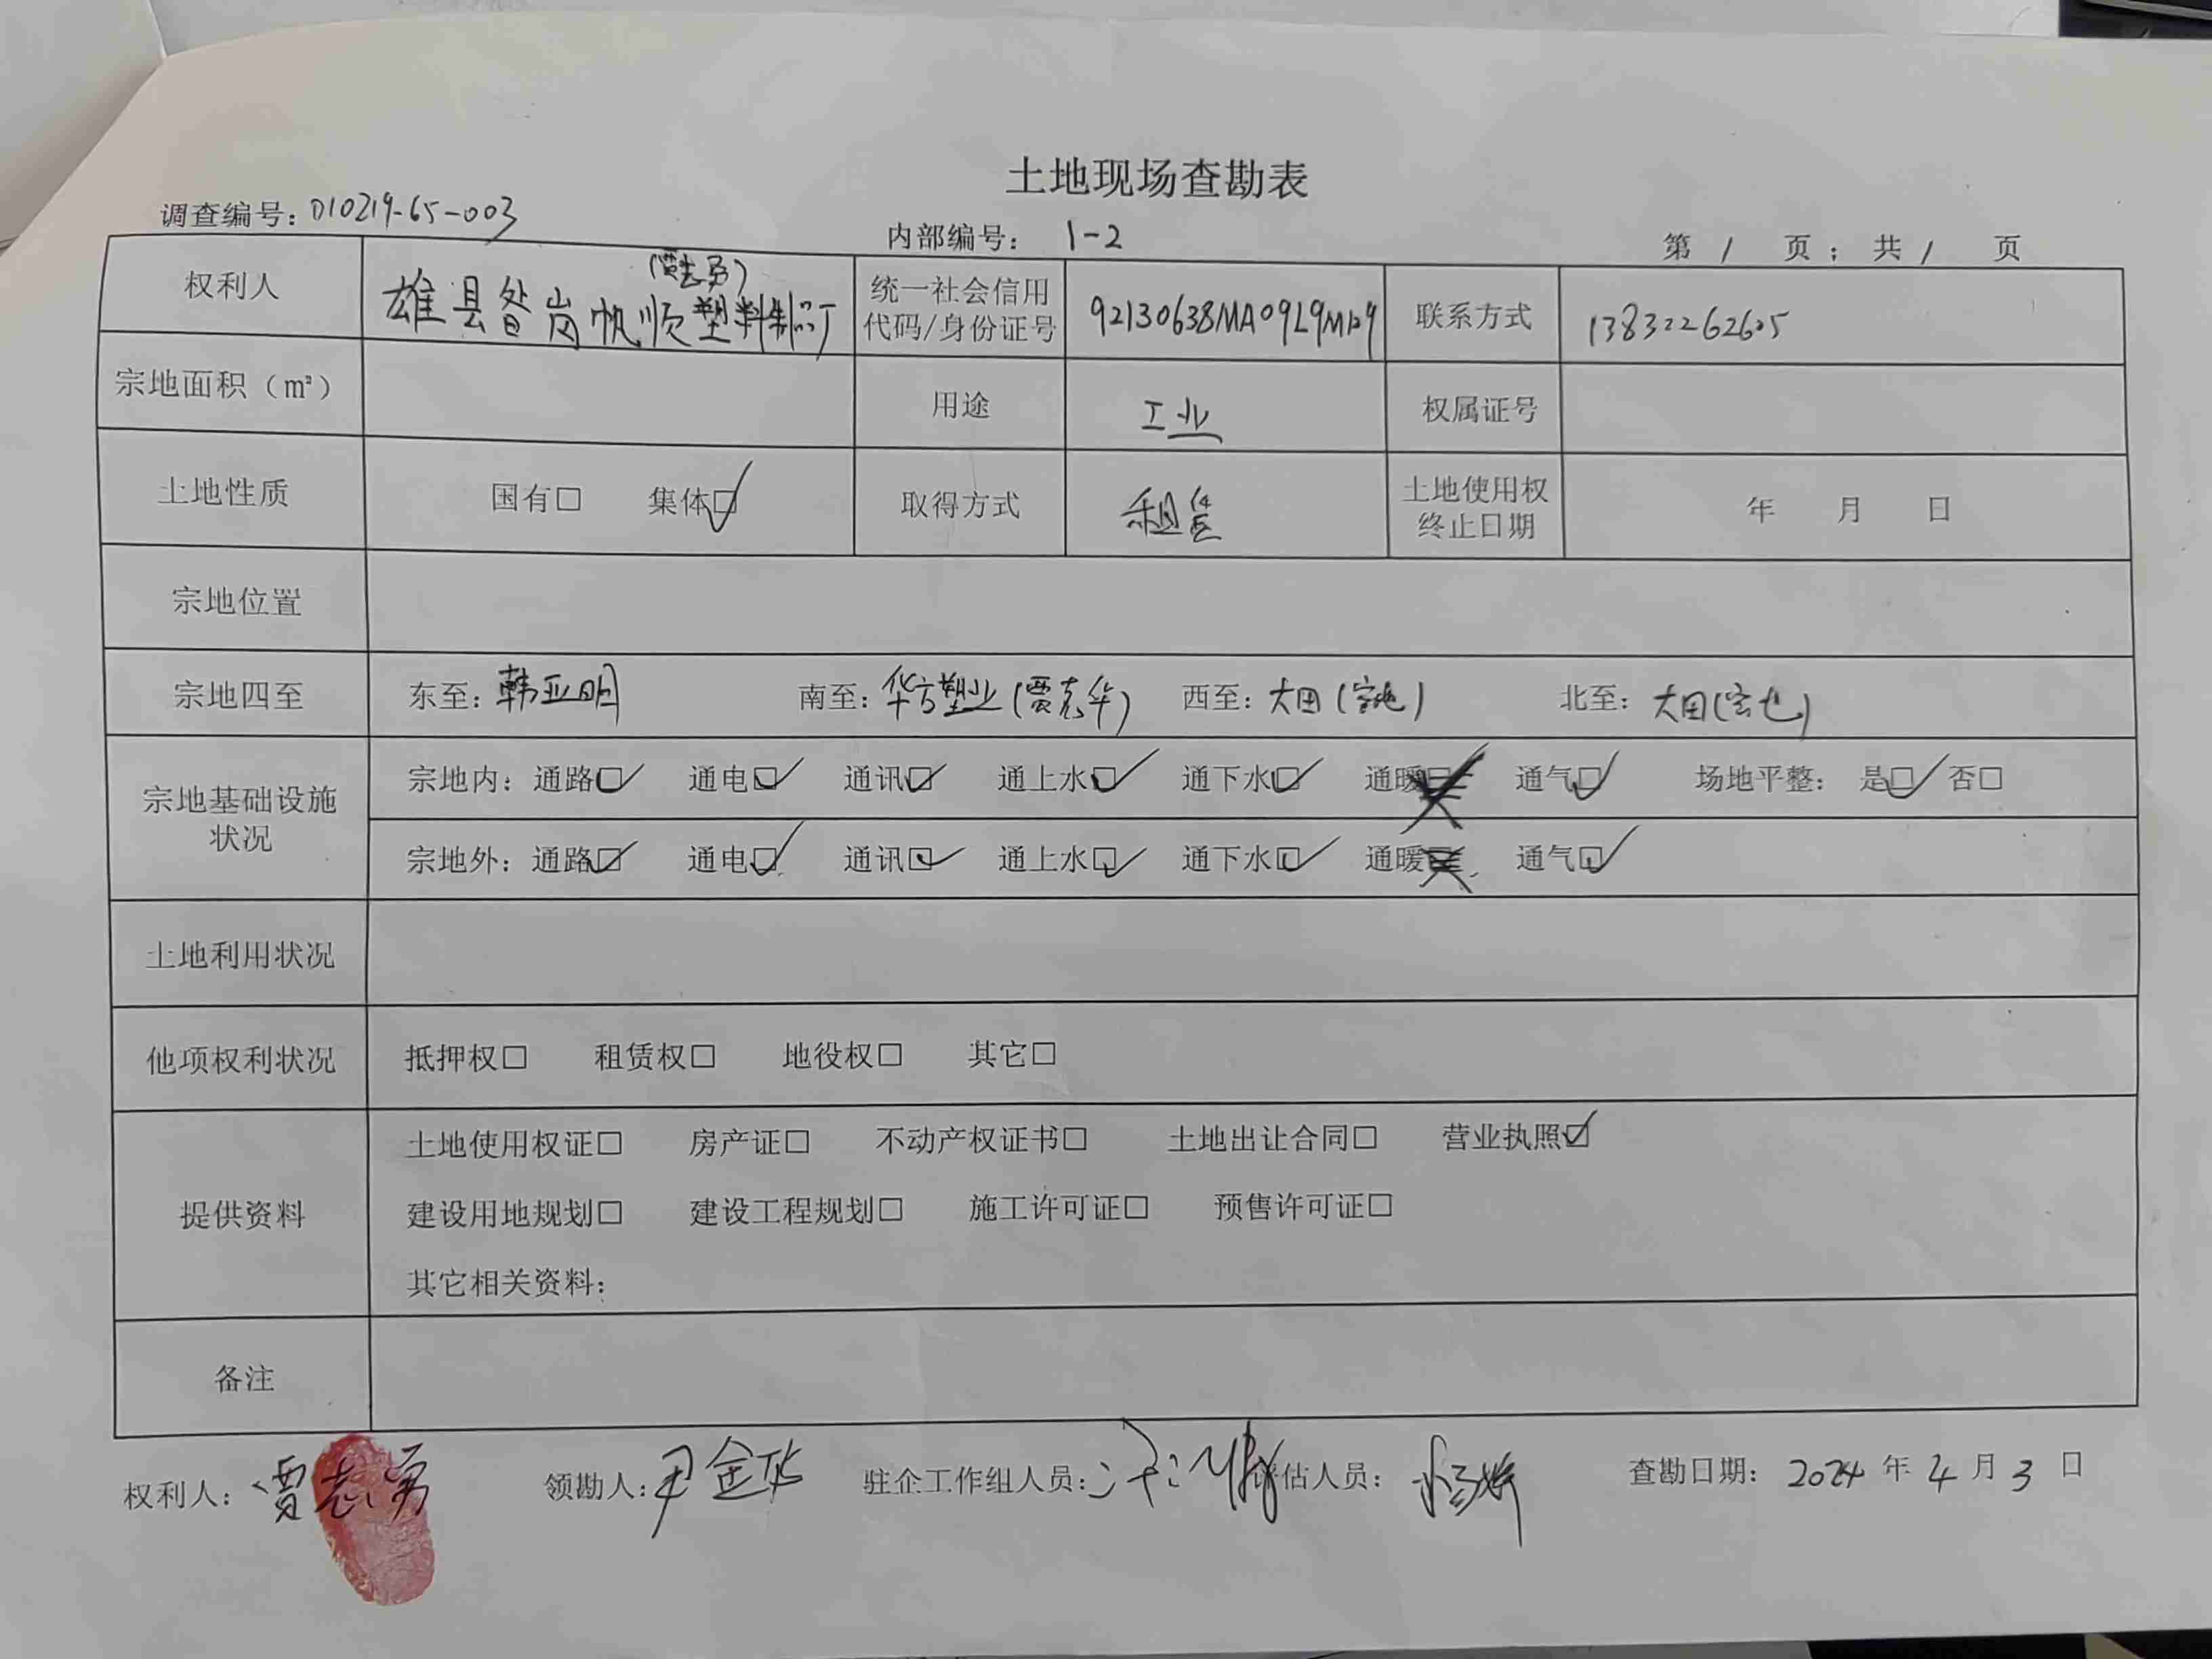 土地现场查勘表
调查编号：D10219-65-003 内部编号： 1-2 第 1 页；共 1 页
权利人 雄县昝岗帆顺塑料制品厂 (贾志勇) 统一社会信用代码/身份证号 92130638MA09L9M 联系方式 13832262605
宗地面积（m²） 用途 工业 权属证号
土地性质 国有☐ 集体☑ 取得方式 租赁 土地使用权终止日期 年 月 日
宗地位置
宗地四至 东至：韩亚明 南至：华方塑业(贾志华) 西至：大田( ) 北至：大田( )
宗地基础设施状况 宗地内：通路☑ 通电☑ 通讯☑ 通上水☑ 通下水☑ 通暖 通气☑ 场地平整： 是☑ 否☐
宗地外：通路☑ 通电☑ 通讯☑ 通上水☑ 通下水☑ 通暖 通气☑
土地利用状况
他项权利状况 抵押权☐ 租赁权☐ 地役权☐ 其它☐
提供资料 土地使用权证☐ 房产证☐ 不动产权证书☐ 土地出让合同☐ 营业执照☑
建设用地规划☐ 建设工程规划☐ 施工许可证☐ 预售许可证☐
其它相关资料：
备注
权利人：贾志勇 领勘人：尹金 驻企工作组人员： 评估人员： 查勘日期：2024 年 4 月 3 日